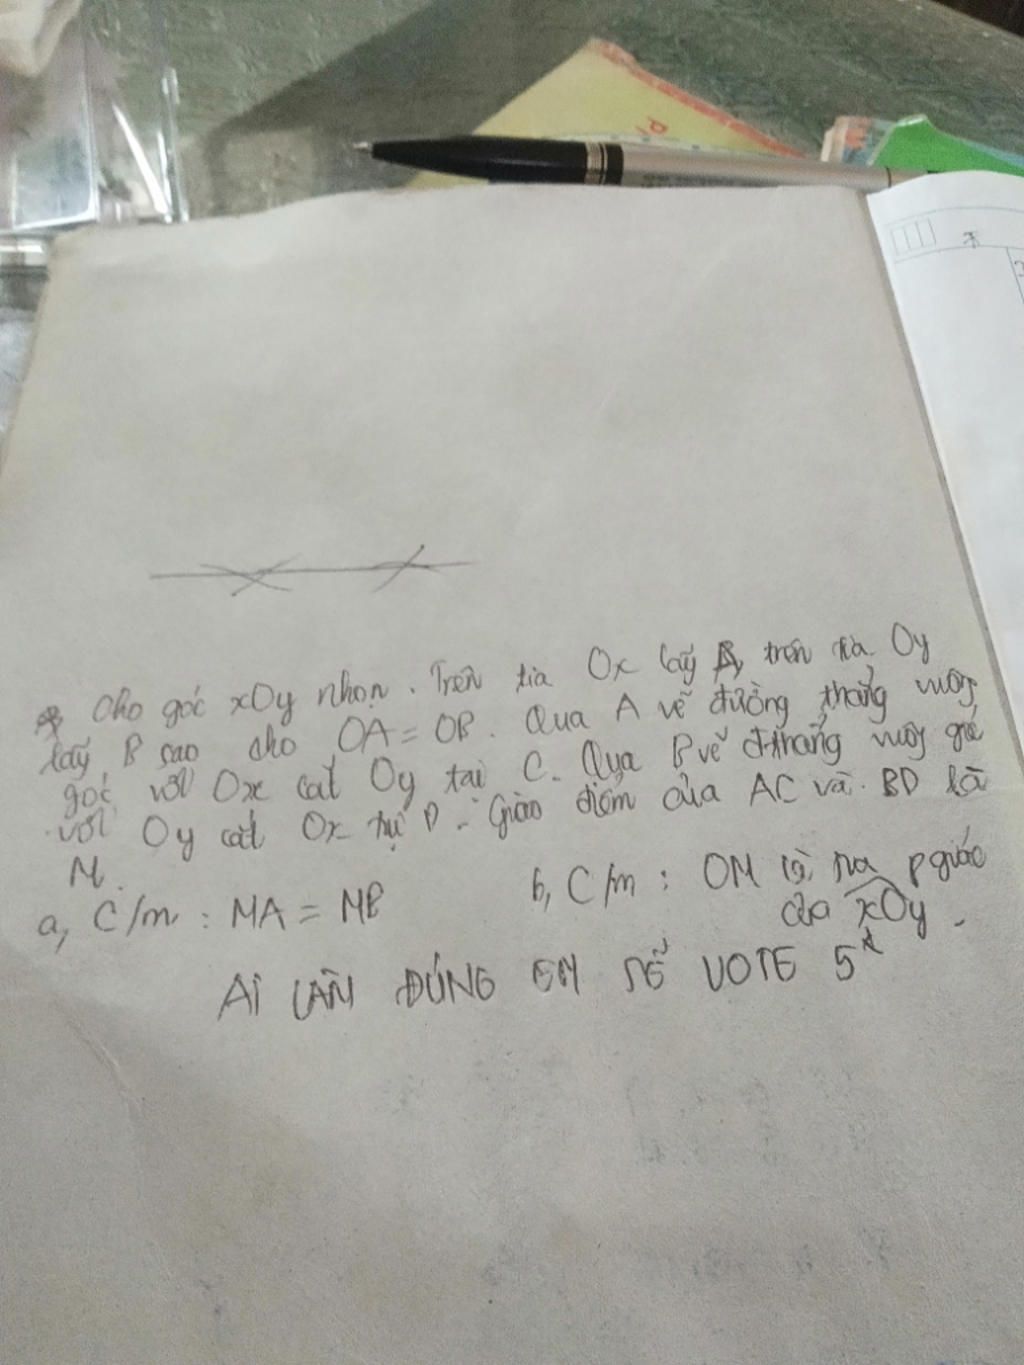 Cho góc xOy nhọn. Trên tia Ox lấy A, trên tia Oy
lấy B sao cho OA = OB. Qua A vẽ đường thẳng vuông
góc với Ox cắt Oy tại C. Qua B vẽ đ thẳng vuông góc
với Oy cắt Ox tại D. Giao điểm của AC và BD là
M.
a, C/m : MA = MB
b, C/m : OM là tia p giác
của xOy.
AI LÀM ĐÚNG EM SẼ VOTE 5*